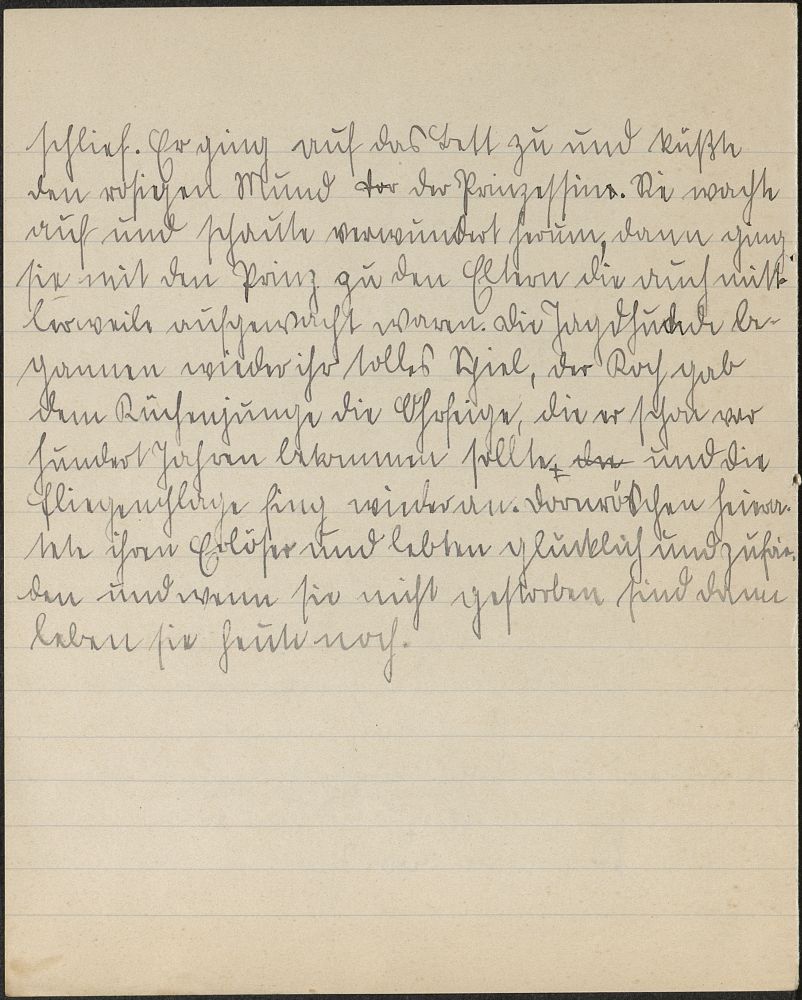 schlief. Er ging auf das Bett zu und küßte
den rosigen Mund der Prinzessin. Sie wachte
auf und schaute verwundert herum, dann ging
sie mit den Prinz zu den Eltern die auch mitt-
lerweile aufgewacht waren. Die Jagdhunde be-
gannen wieder ihr tolles Spiel, der Koch gab
dem Küchenjunge die Ohrfeige, die er schon vor
hundert Jahren bekommen sollte, und die
Fliegenplage fing wieder an. Dornröschen heira-
tete ihren Erlöser und lebten glücklich und zufrie-
den und wenn sie nicht gestorben sind dann
leben sie heute noch.